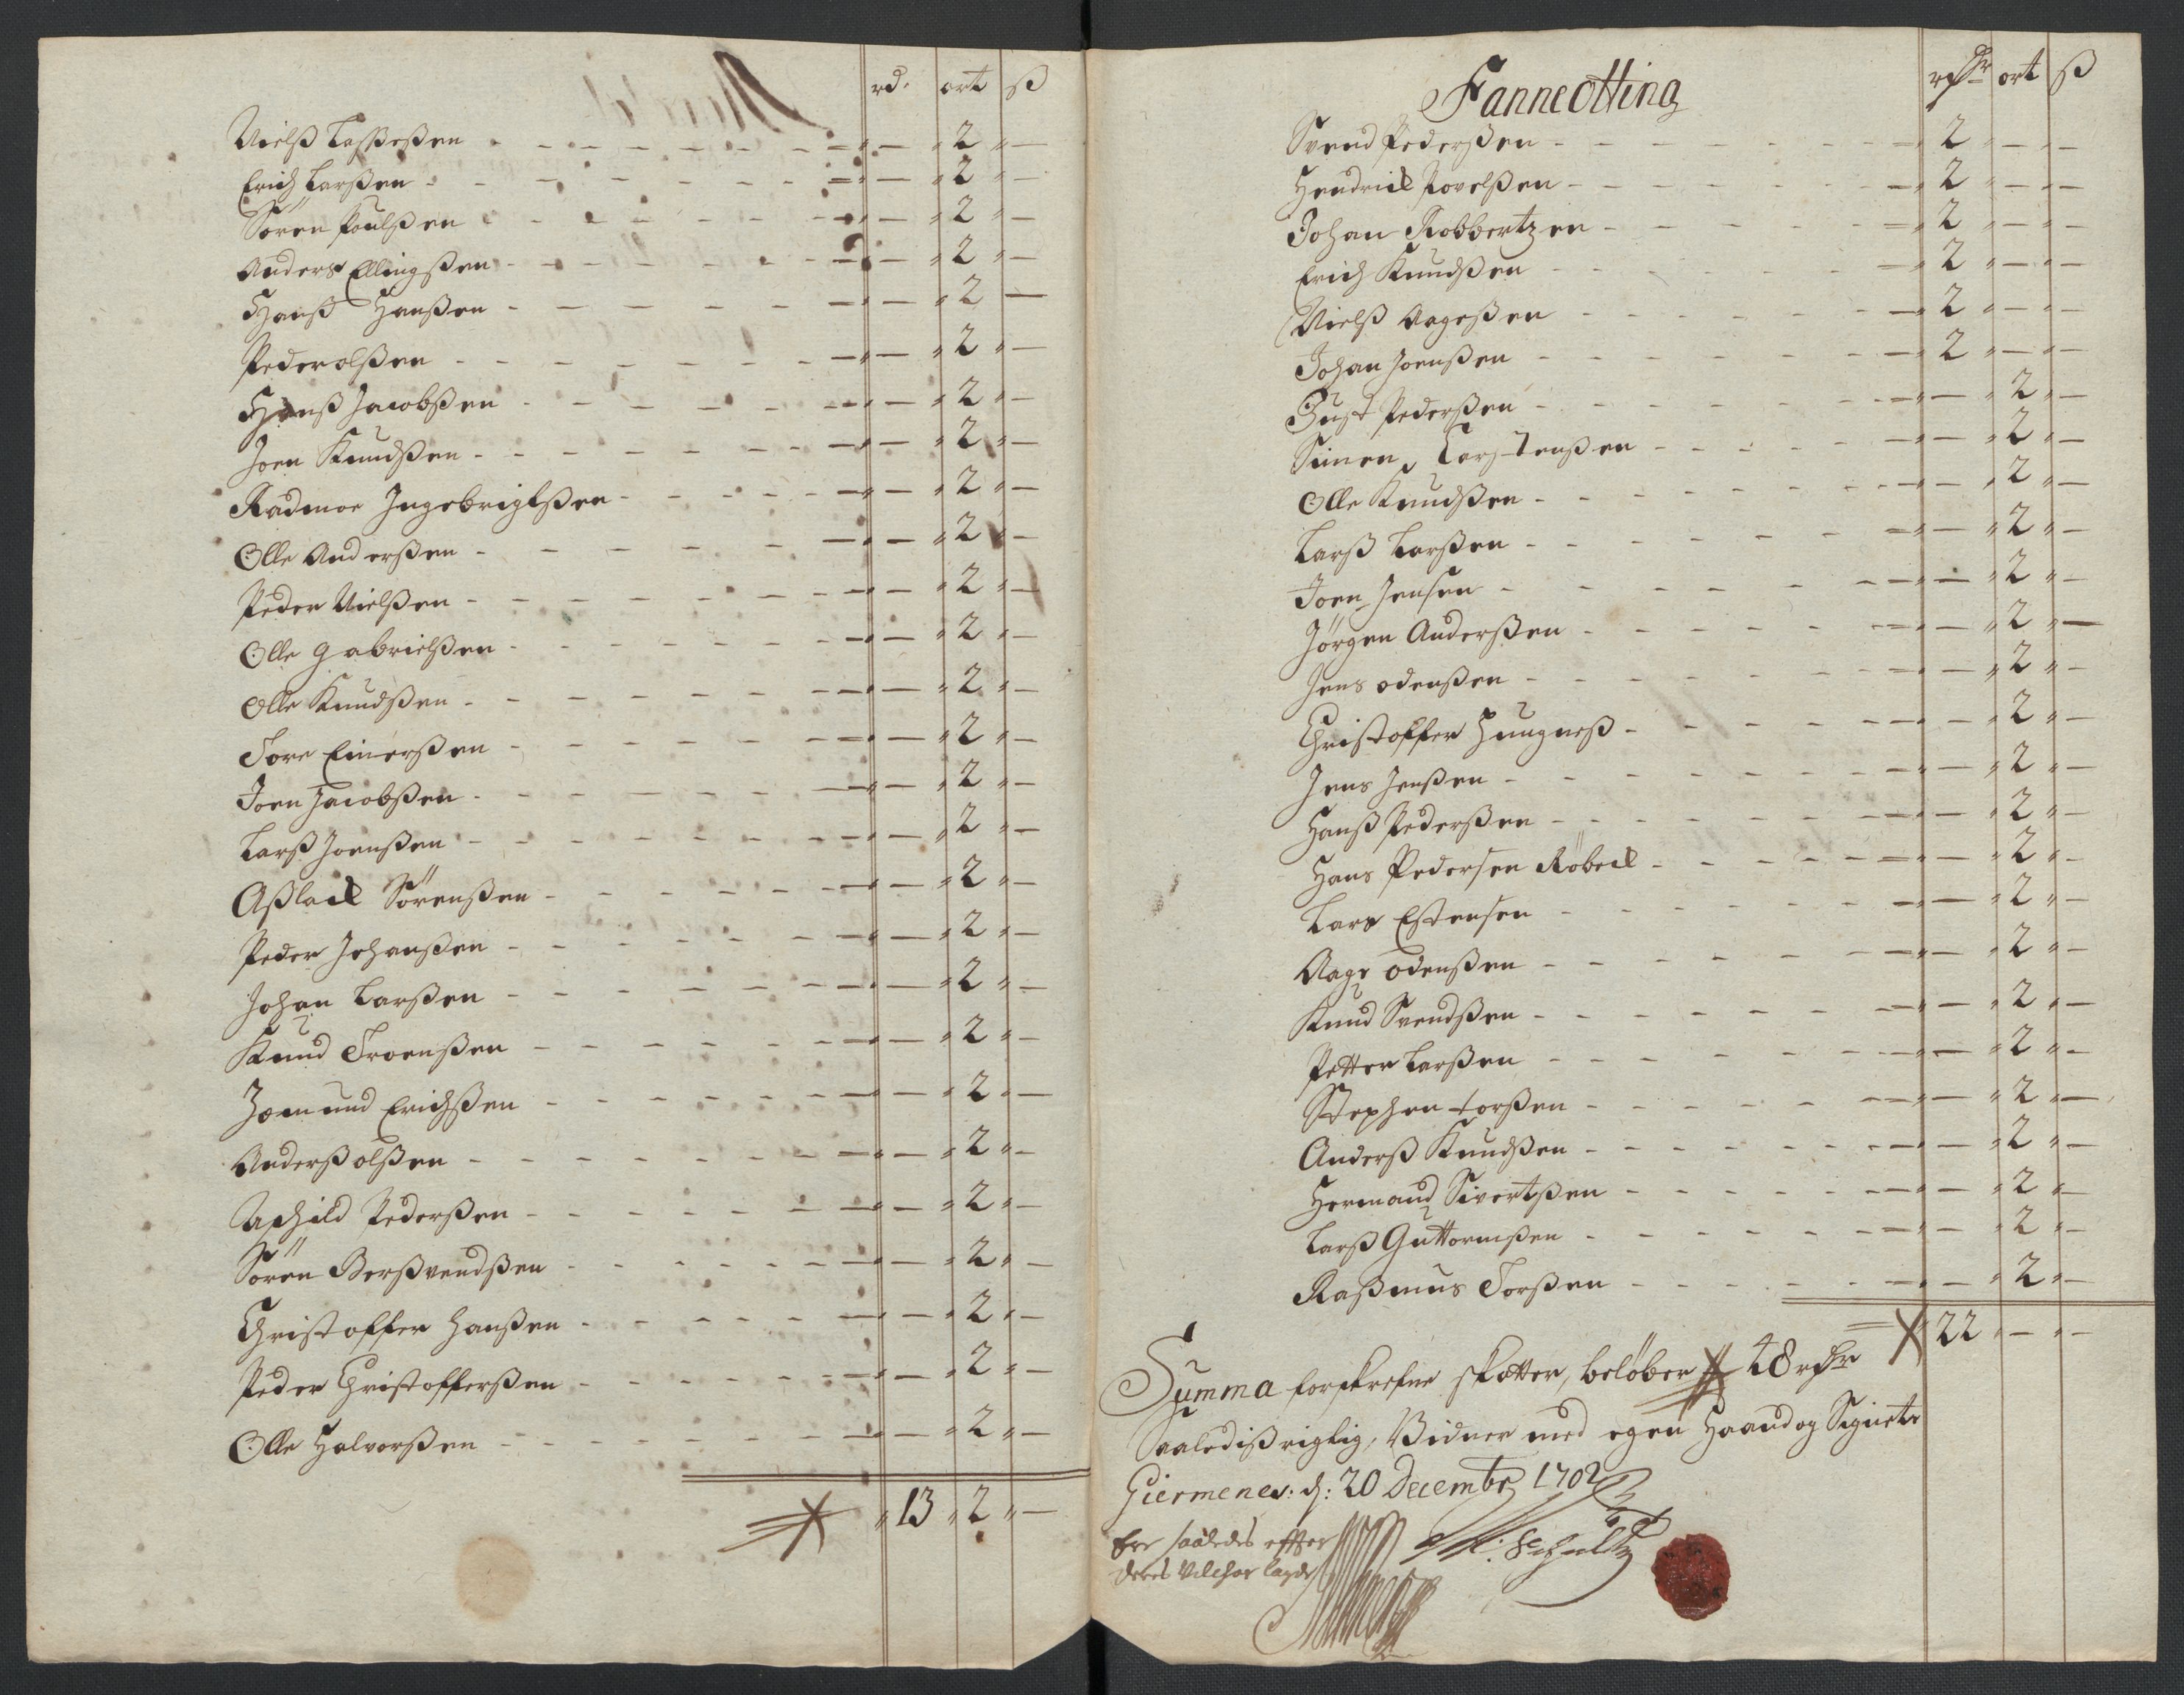 rd. ort ß
Nielß Laßeßen - 2 -
Erich Larßen - 2 -
Sören Poulßen - 2 -
Anders Ellingßen - 2 -
Hanß Hanßen - 2 -
Peder olßen - 2 -
Hanß Jacobßen - 2 -
Joen Knudßen - 2 -
Radmoe Ingebrigtßen - 2 -
Olle Anderßen - 2 -
Peder Nielßen - 2 -
Olle Gabrielßen - 2 -
Olle Knudßen - 2 -
Tore Einerßen - 2 -
Joen Jacobßen - 2 -
Larß Joenßen - 2 -
Aßlack Sörenßen - 2 -
Peder Johanßen - 2 -
Johan Larßen - 2 -
Knud Troenßen - 2 -
Joemund Erichßen - 2 -
Anderß olßen - 2 -
Pederßen - 2 -
Sören Berßvendßen - 2 -
Christoffer Hanßen - 2 -
Peder Christofferßen - 2 -
Olle Halvorßen - 2 -
13 2 -
Fanne Otting
rdr ort ß
Svend Pederßen 2 - -
Hendrick Povelßen 2 - -
Johan Robbertzen 2 - -
Erich Knudßen 2 - -
Nielß Aageßen 2 - -
Johan Joenßen 2 - -
Just Pederßen - 2 -
Simen Carstenßen - 2 -
Olle Knudßen - 2 -
Larß Larßen - 2 -
Joen Jensen - 2 -
Jörgen Anderßen - 2 -
Jens odenßen - 2 -
Christoffer Huugneß - 2 -
Jens Jenßen - 2 -
Hanß Pederßen - 2 -
Hans Pedersen Röbeck - 2 -
Lars Estensen - 2 -
Aage odenßen - 2 -
Knud Svendßen - 2 -
Petter Larßen - 2 -
Stephen torßen - 2 -
Anderß Knudßen - 2 -
Hermand Sivertßen - 2 -
Larß Guttormßen - 2 -
Raßmus Torßen - 2 -
22 - -
Summa forskrefne skatter, beløber 48 rdr
Saalediß rigtig, Vidner med egen Haand og Signete
Giermenes: d: 20 Decembr 1702
Ere saaledes effter
deres Vilchor lagde
M: Schultz